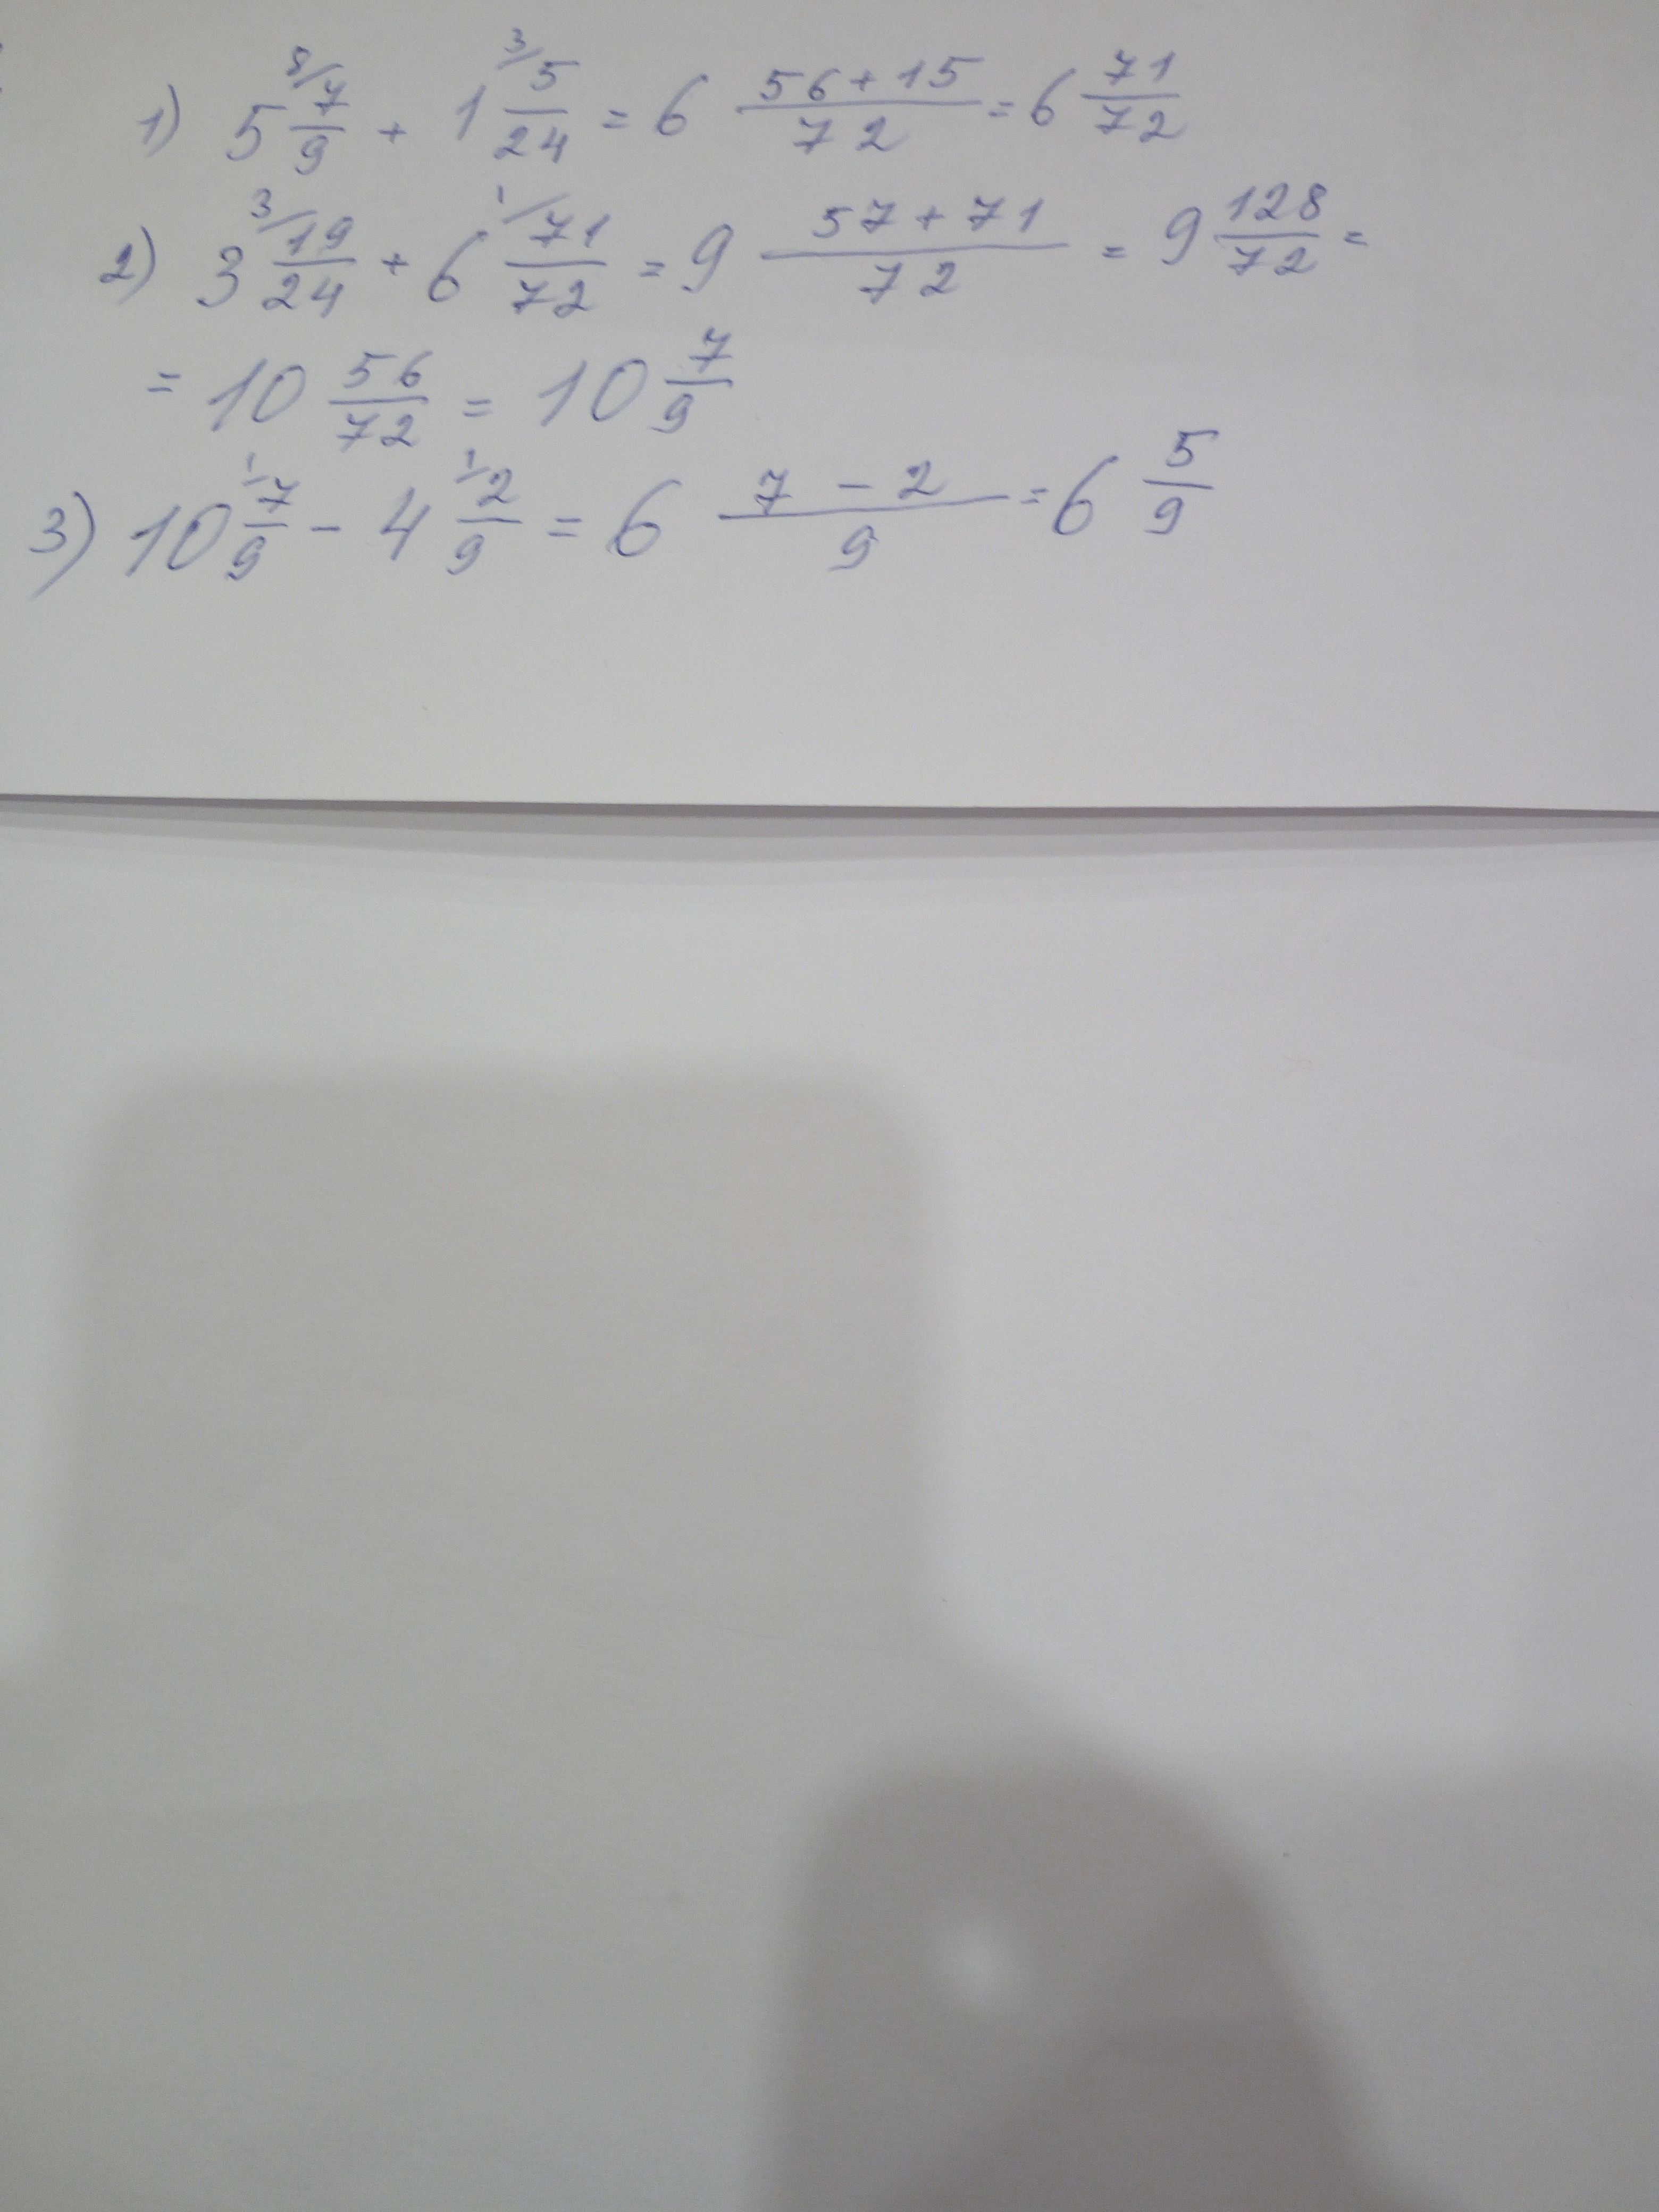 1) 5 8/7/9 + 1 3/5/24 = 6 56+15/72 = 6 71/72
2) 3 3/19/24 + 6 1/71/72 = 9 57+71/72 = 9 128/72 =
= 10 56/72 = 10 7/9
3) 10 1/7/9 - 4 1/2/9 = 6 7-2/9 = 6 5/9